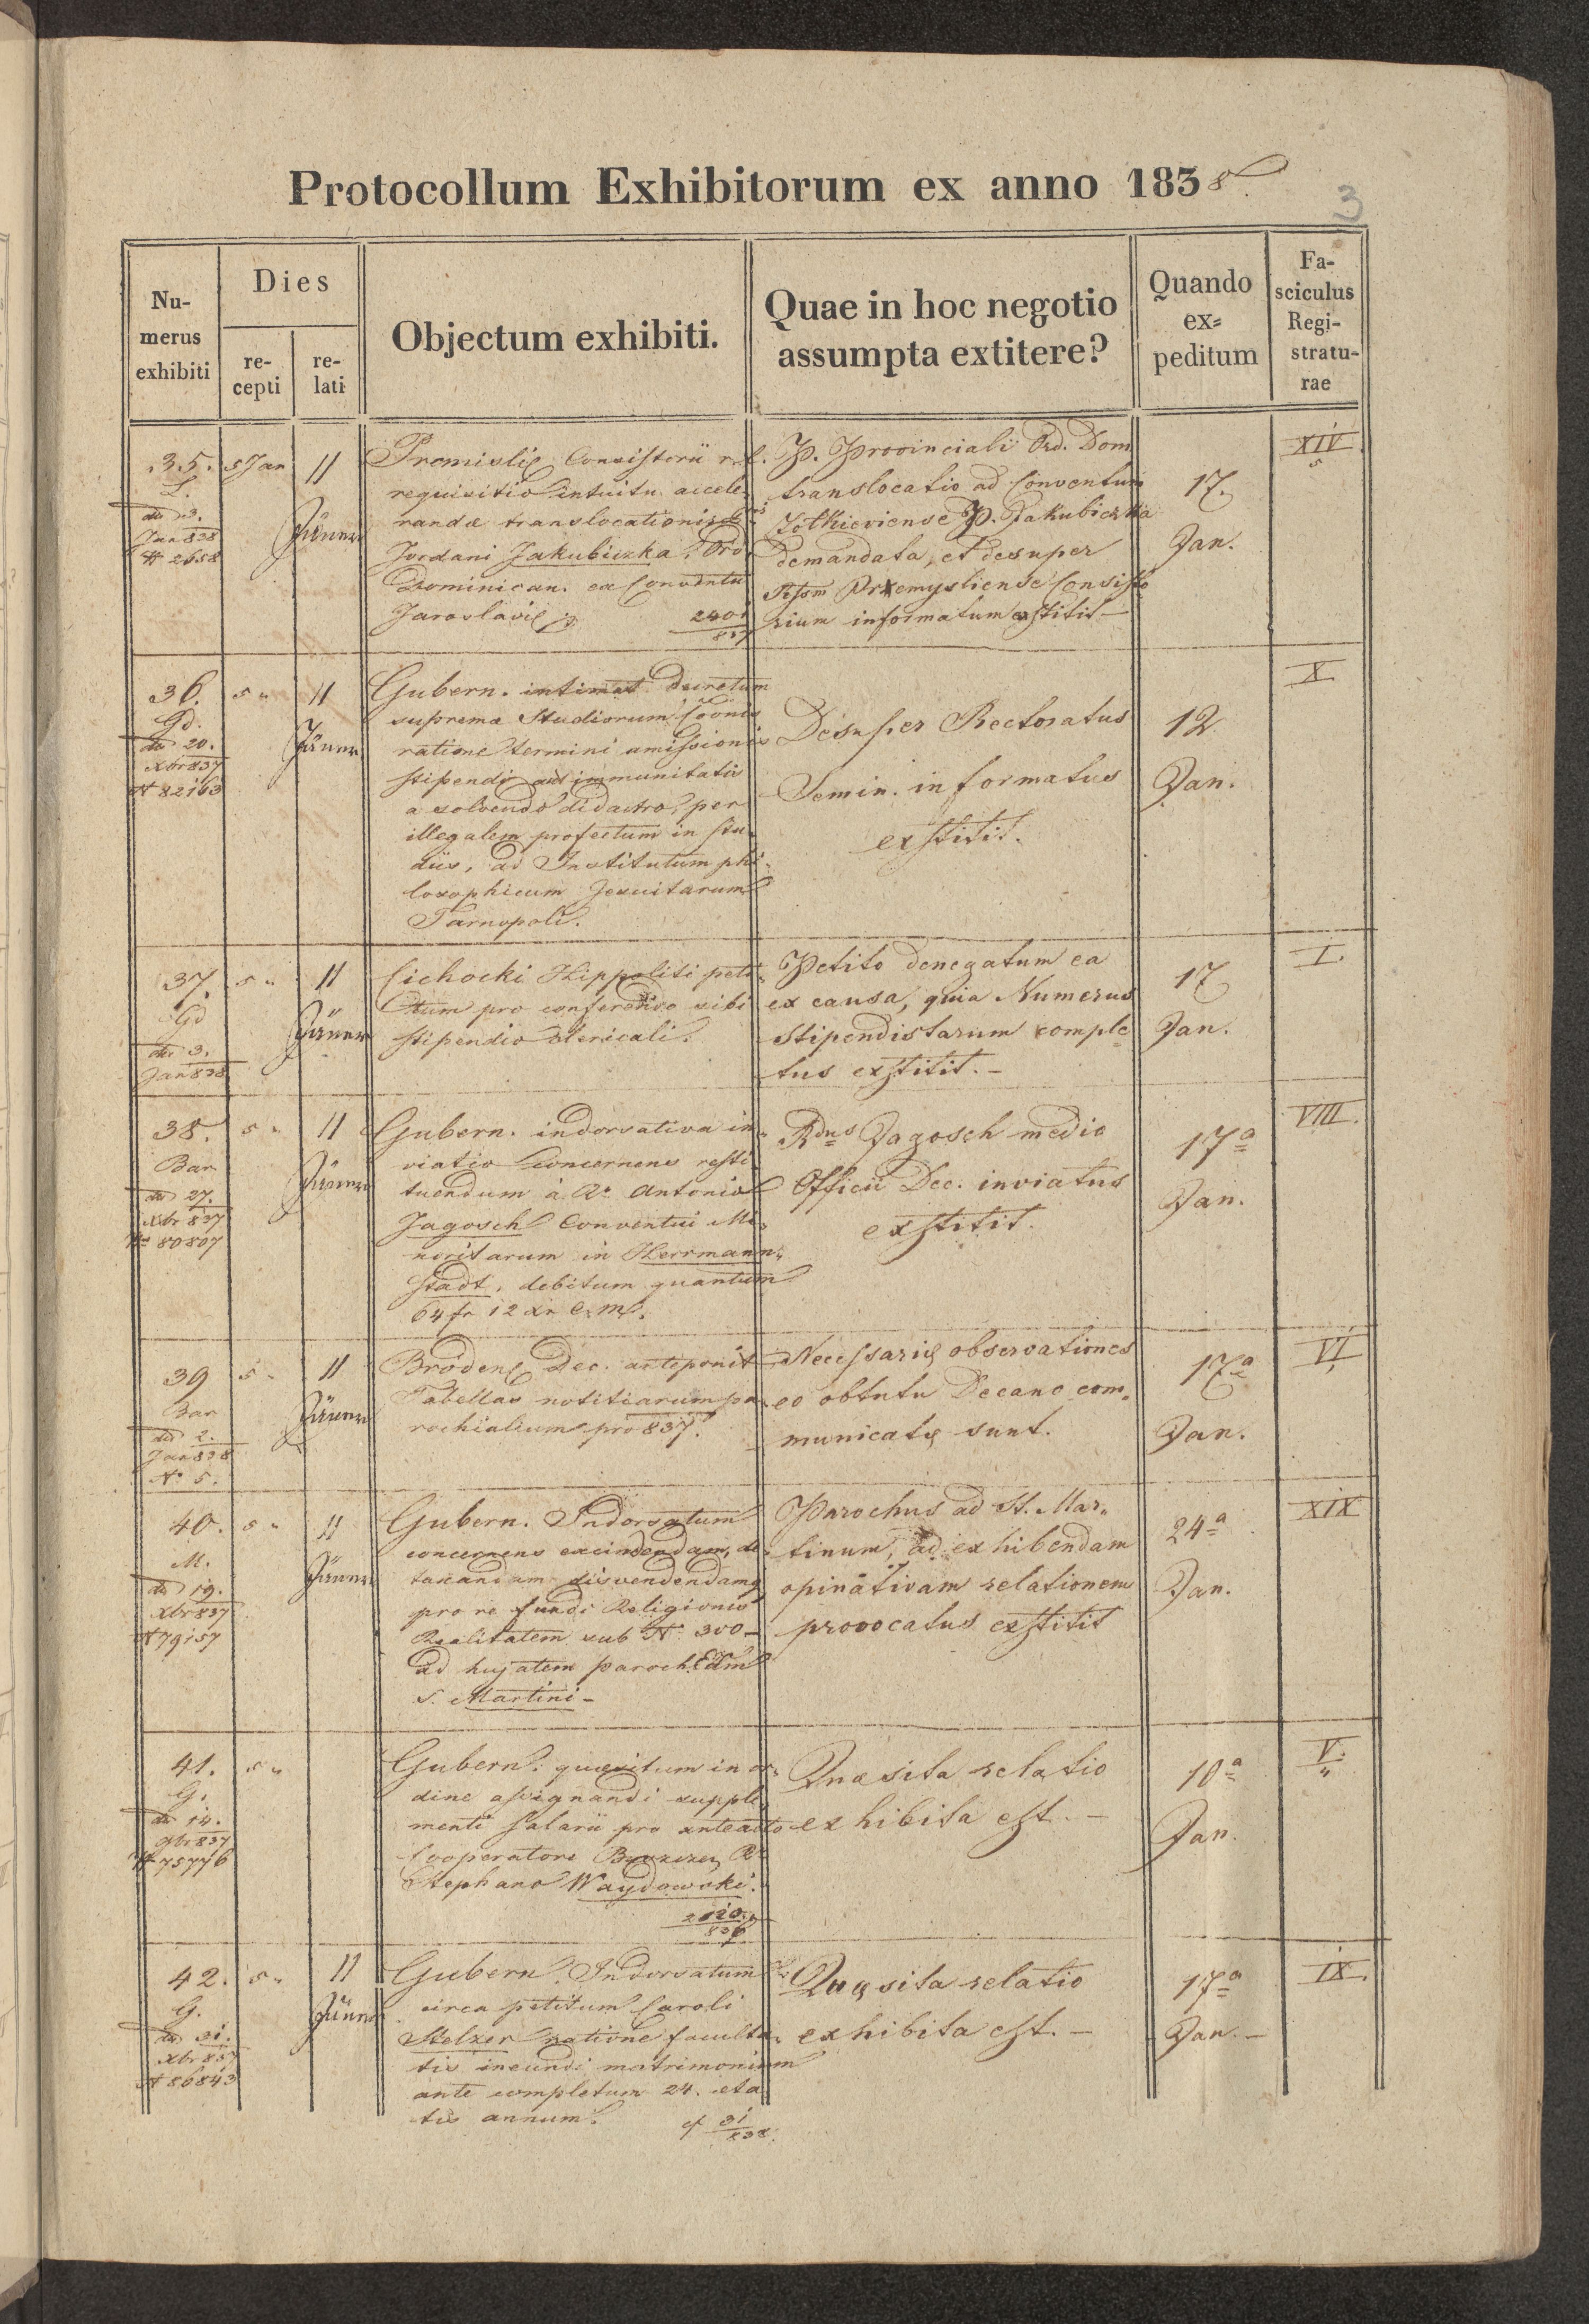 Protocollum Exhibitorum ex anno 1838.
3
Nu-
merus
exhibiti
Dies
re-
cepti
re-
lati
Objectum exhibiti.
Quae in hoc negotio
assumpta extitere?
Quando
ex=
peditum
Fa-
sciculus
Regi-
stratu-
rae
35.
L.
dto 3.
Jan 838
N 2658
5 Jan
11
Jänner
Premislię Consistorii r. l.
requisitio intuitu accele-
randæ translocationis
Jordani Jakubiczka, Ord.
Dominican. ex Conventu
Jaroslavię
2401
837
P. Provinciali Ord. Dom
translocatio ad Conventum
Zolkieviense P. Jakubiczka
demandata, et desuper
Præmysliense Consisto
rium informatum exstitit —
17.
Jan.
XIV.
5
36.
Gd.
dto 20.
Xbr 837
N 82163
5 "
11
Jänner
Gubern. intimat Decretum
supremæ Studiorum Coonis
ratione termini amissionis
stipendii aut immunitatis
a solvendo didactro, per
illegalem profectum in stu-
diis, ad Institutum phi-
losophicum Jesuitarum
Tarnopoli.
Desuper Rectoratus
Semin. informatus
exstitit.
12
Jan.
X.
37.
Gd
dto 3.
Jan 838
5 "
11
Jänner
Cichocki Hippoliti peti-
tum pro conferendo sibi
stipendio Clericali.
Petito denegatum ea
ex causa, quia Numerus
Stipendistarum comple-
tus exstitit. —
17
Jan.
I.
38.
Bar
dto 27.
Xbr 837
N 80807
5 "
11
Jänner
Gubern. indorsativa in-
viatio concernens resti-
tuendum à R. Antonio
Jagosch Conventui Mi-
noritarum in Herrmann-
stadt, debitum quantum
64 fr 12 xr C. M.
Rdus Jagosch medio
Officii Dec. inviatus
exstitit.
17a
Jan.
VIII.
39
Bar
dto 2.
Jan 838
N. 5.
5 "
11
Jänner
Brodenę Dec. anteponit
Tabellas notitiarum pa-
rochialium pro 837.
Necessarię observationes
eo obtutu Decano com-
municatę sunt.
17a
Jan.
VI.
40.
M.
dto 19.
Xbr 837
N 79157
5 "
11
Jänner
Gubern. Indorsatum
concernens excindendam, de-
taxandam disvendendamq
pro re fundi Religionis
Realitatem sub N. 300 -
ad hujatem paroch. Eccl.
S. Martini -
Parochus ad St. Mar-
tinum, ad exhibendam
opinativam relationem
provocatus exstitit
24a
Jan.
XIX
41.
G.
dto 14.
9br 837
N 75776
5 "
Gubern. quæsitum in or-
dine assignandi supple-
menti salarii pro anteacto
Cooperatore R.
Stephano Waydowski.
2020
836
Quæsita relatio
exhibita est. —
10a
Jan.
V.
42.
G.
dto 31.
Xbr 837
N 86843
5 "
11
Jänner
Gubern. Indorsatum
circa petitum Caroli
Stelzer ratione faculta-
tis ineundi matrimonium
ante completum 24. eta
tis annum.
cf 31
838.
Quęsita relatio
exhibita est. —
17a
Jan. —
IX.